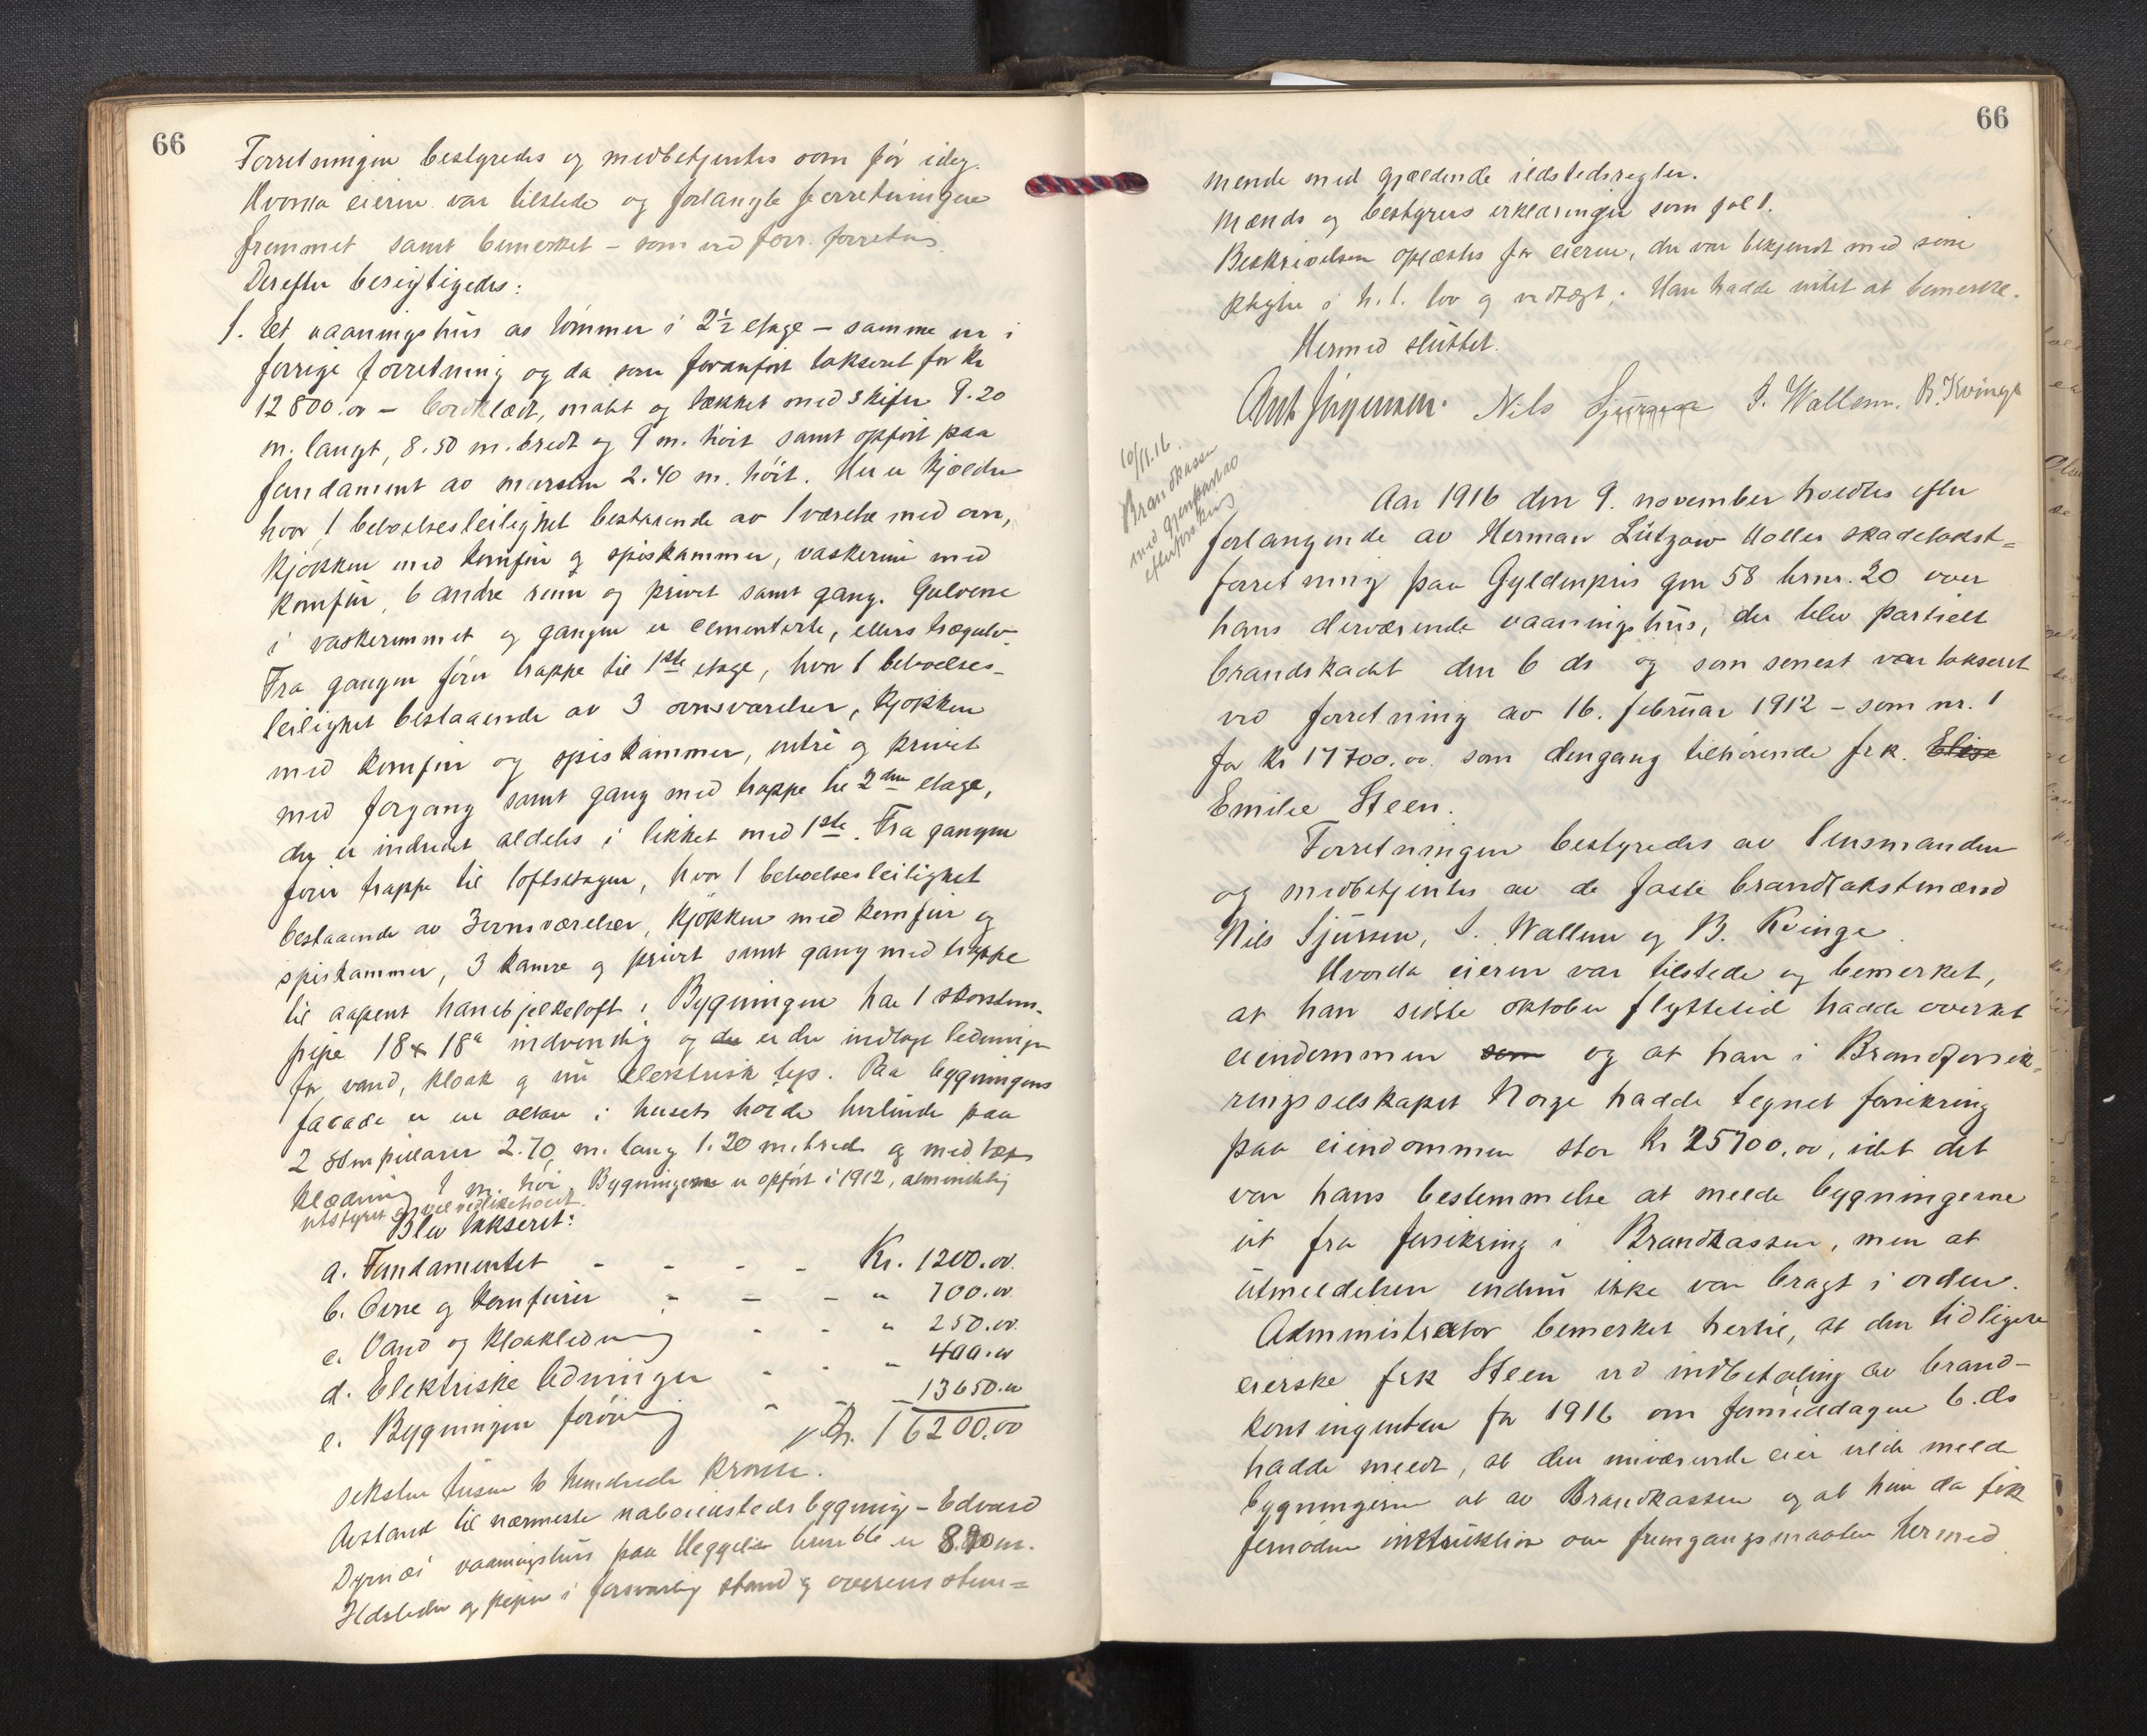 66
Forretningen bestyredes og medbetjentes som før idag.
Hvorda eieren var tilstede og forlangte forretningen
fremmet samt bemerket – som ved forr. forretn.
Derefter besigtigedes:
1. Et vaaningshus av tømmer i 2½ etage – samme nr i
forrige forretning og da som foranført taksert for kr
12800.00 – bordklædt, malt og tækket med skifer 9.20
m. langt, 8.50 m. bredt og 9 m. høit samt opført paa
fundament av mursten 2.40 m. høit. Her er kjælder
hvor 1 beboelsesleilighet bestaaende av 1 værelse med ovn,
kjøkken med komfur og spiskammer, vaskerum med
komfur, 6 andre rum og privet samt gang. Gulvene
i vaskerummet og gangen er cementerte, ellers trægulv
Fra gangen fører trappe til 1ste etage, hvor 1 beboelses-
leilighet bestaaende av 3 ovnsværelser, kjøkken
med komfur og spiskammer, entré og privet
med forgang samt gang med trappe til 2den etage,
der er indredet aldeles i likhet med 1ste. Fra gangen
fører trappe til loftsetagen, hvor 1 beboelsesleilighet
bestaaende av 3 ovnsværelser, kjøkken med komfur og
spiskammer, 3 kamre og privet samt gang med trappe
til aapent hanebjelkeloft. Bygningen har 1 skorstens-
pipe 18 x 18" indvendig og der er der indlagt ledninger
for vand, kloak og nu elektrisk lys. Paa bygningens
facade er en altan i husets høide hvilende paa
2 stenpillarer 2.70 m. lang 1.20 m. bred og med
klædning 1 m. høi. Bygningen er opført i 1912, almindelig
utstyret og vel vedlikeholdt.
Blev taksert:
a. Fundamentet - - - - Kr. 1200.00
b. Ovne og komfurer - - - " 700.00
c. Vand og kloakledning - - " 250.00
d. Elektriske ledninger - - " 400.00
e. Bygningen forøvrig - - - 13650.00
Kr. 16200.00
seksten tusen to hundrede kroner.
Avstand til nærmeste naboildsteds bygning – Edvard
Dyrnæs vaaningshus paa Heggelien brnr 66 er 8.90 m.
Ildsteder og piper i forsvarlig stand og overensstem=
66
mende med gjældende ildstedsregler.
Mænds og bestyrers erklæringer som fol 1.
Beskrivelsen oplæstes for eieren, der var bekjendt med sine
pligter i h. t. lov og vedtægt. Han hadde intet at bemerke.
Hermed sluttet.
Ant. Jørgensen. Nils Sjursen S. Wallem. B. Kvinge
10/11.16.
Brandkassen
med gjenpart ao
Aar 1916 den 9. november holdtes efter
forlangende av Herman Lützow Holler skadetakst=
forretning paa Gyldenpris gnr 58 brnr. 20 over
hans derværende vaaningshus, der blev partielt
brandskadet den 6 ds og som senest var taksert
ved forretning av 16. februar 1912 – som nr. 1
for kr 17700.00 som dengang tilhørende frk. Elise
Emilie Steen.
Forretningen bestyredes av lensmanden
og medbetjentes av de faste brandtakstmænd
Nils Sjursen, S. Wallem og B. Kvinge.
Hvorda eieren var tilstede og bemerket,
at han sidste oktober flyttetid hadde overtat
eiendommen som og at han i Brandforsik-
ringsselskapet Norge hadde tegnet forsikring
paa eiendommen stor kr 25700.00, idet det
var hans bestemmelse at melde bygningerne
ut fra forsikring i Brandkassen, men at
utmeldelsen endnu ikke var bragt i orden.
Administrator bemerket hertil, at den tidligere
eierske frk Steen ved indbetaling av brand-
kontingenten for 1916 om formiddagen 6. ds
hadde meldt, at den nuværende eier vilde melde
bygningerne ut av Brandkassen og at hun da fik
fornøden instruktion om fremgangsmaaten hermed